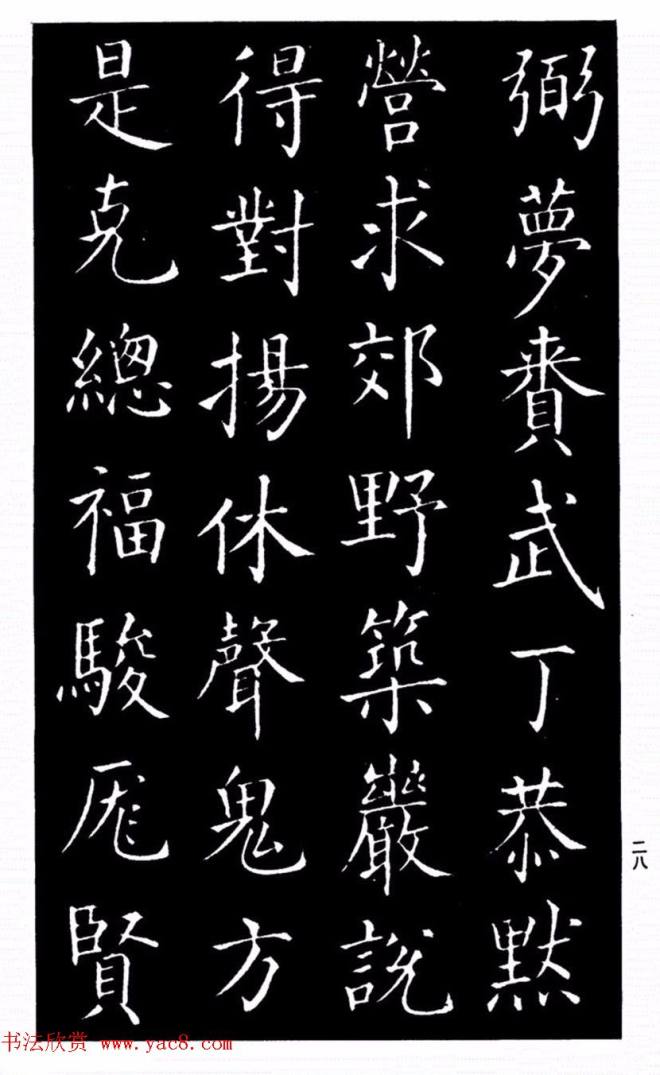 弼夢賚武丁恭默
營求郊野築巖說
得對揚休聲鬼方
是克總福駿厖賢
二八
书法欣赏 www.yac8.com